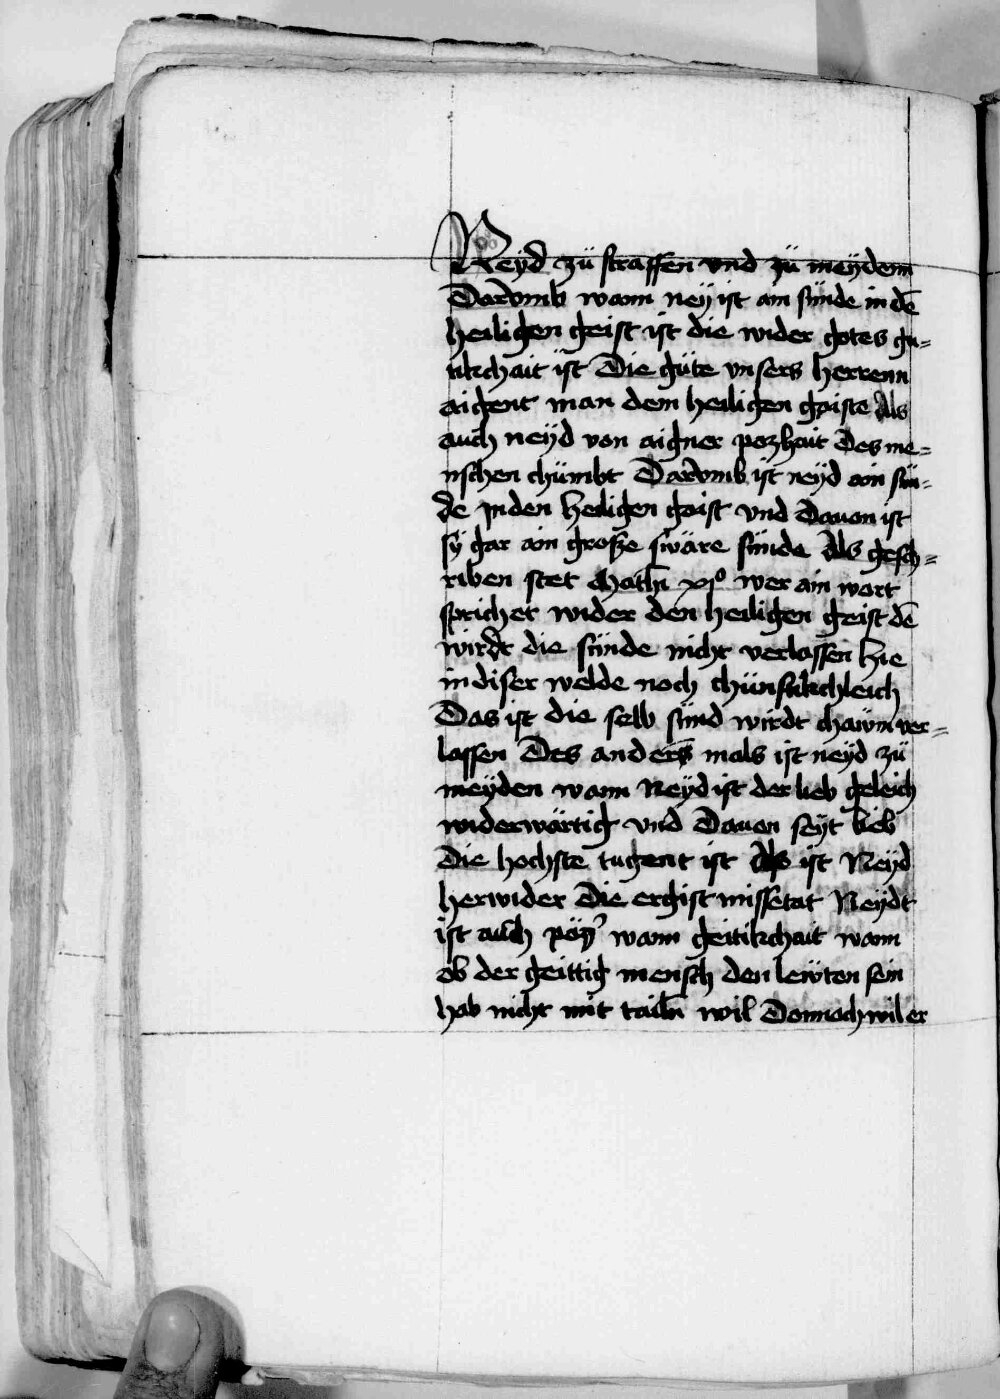 Neyd zü straffen vnd zü meydenn
Darvmb wann ney ist ain sünde in dē
heiligen geist ist die wider gotes gu-
tikchait ist Die güte vnsers herrenn
aigent man dem heiligen gaiste Als
auch neyd von aigner pozhait Des me-
nschen chümbt Darvmb ist neyd ain sün-
de jn den heiligen gaist vnd Dauon ist
sÿ gar ain große swäre sünde Als gesch-
riben stet Mathei xijº wer ain wort
sprichet wider den heiligen geist dē
wirdt die sünde nicht verlassen hie
in diser welde noch chünftikchleich
Das ist die selb sünd wirdt chawm ver-
lassen Des anders mals ist neyd zü
meyden wann Neyd ist der lieb geleich
widerwärtig vnd Dauon seyt lieb
Die hochste tugent ist Als ist Neyd
herwider Die ergist missetat Neydt
ist auch pöß wann geitikchait wann
ob der geittig mensch den lewten sein
hab nicht mit tailn wil Dannoch wil er